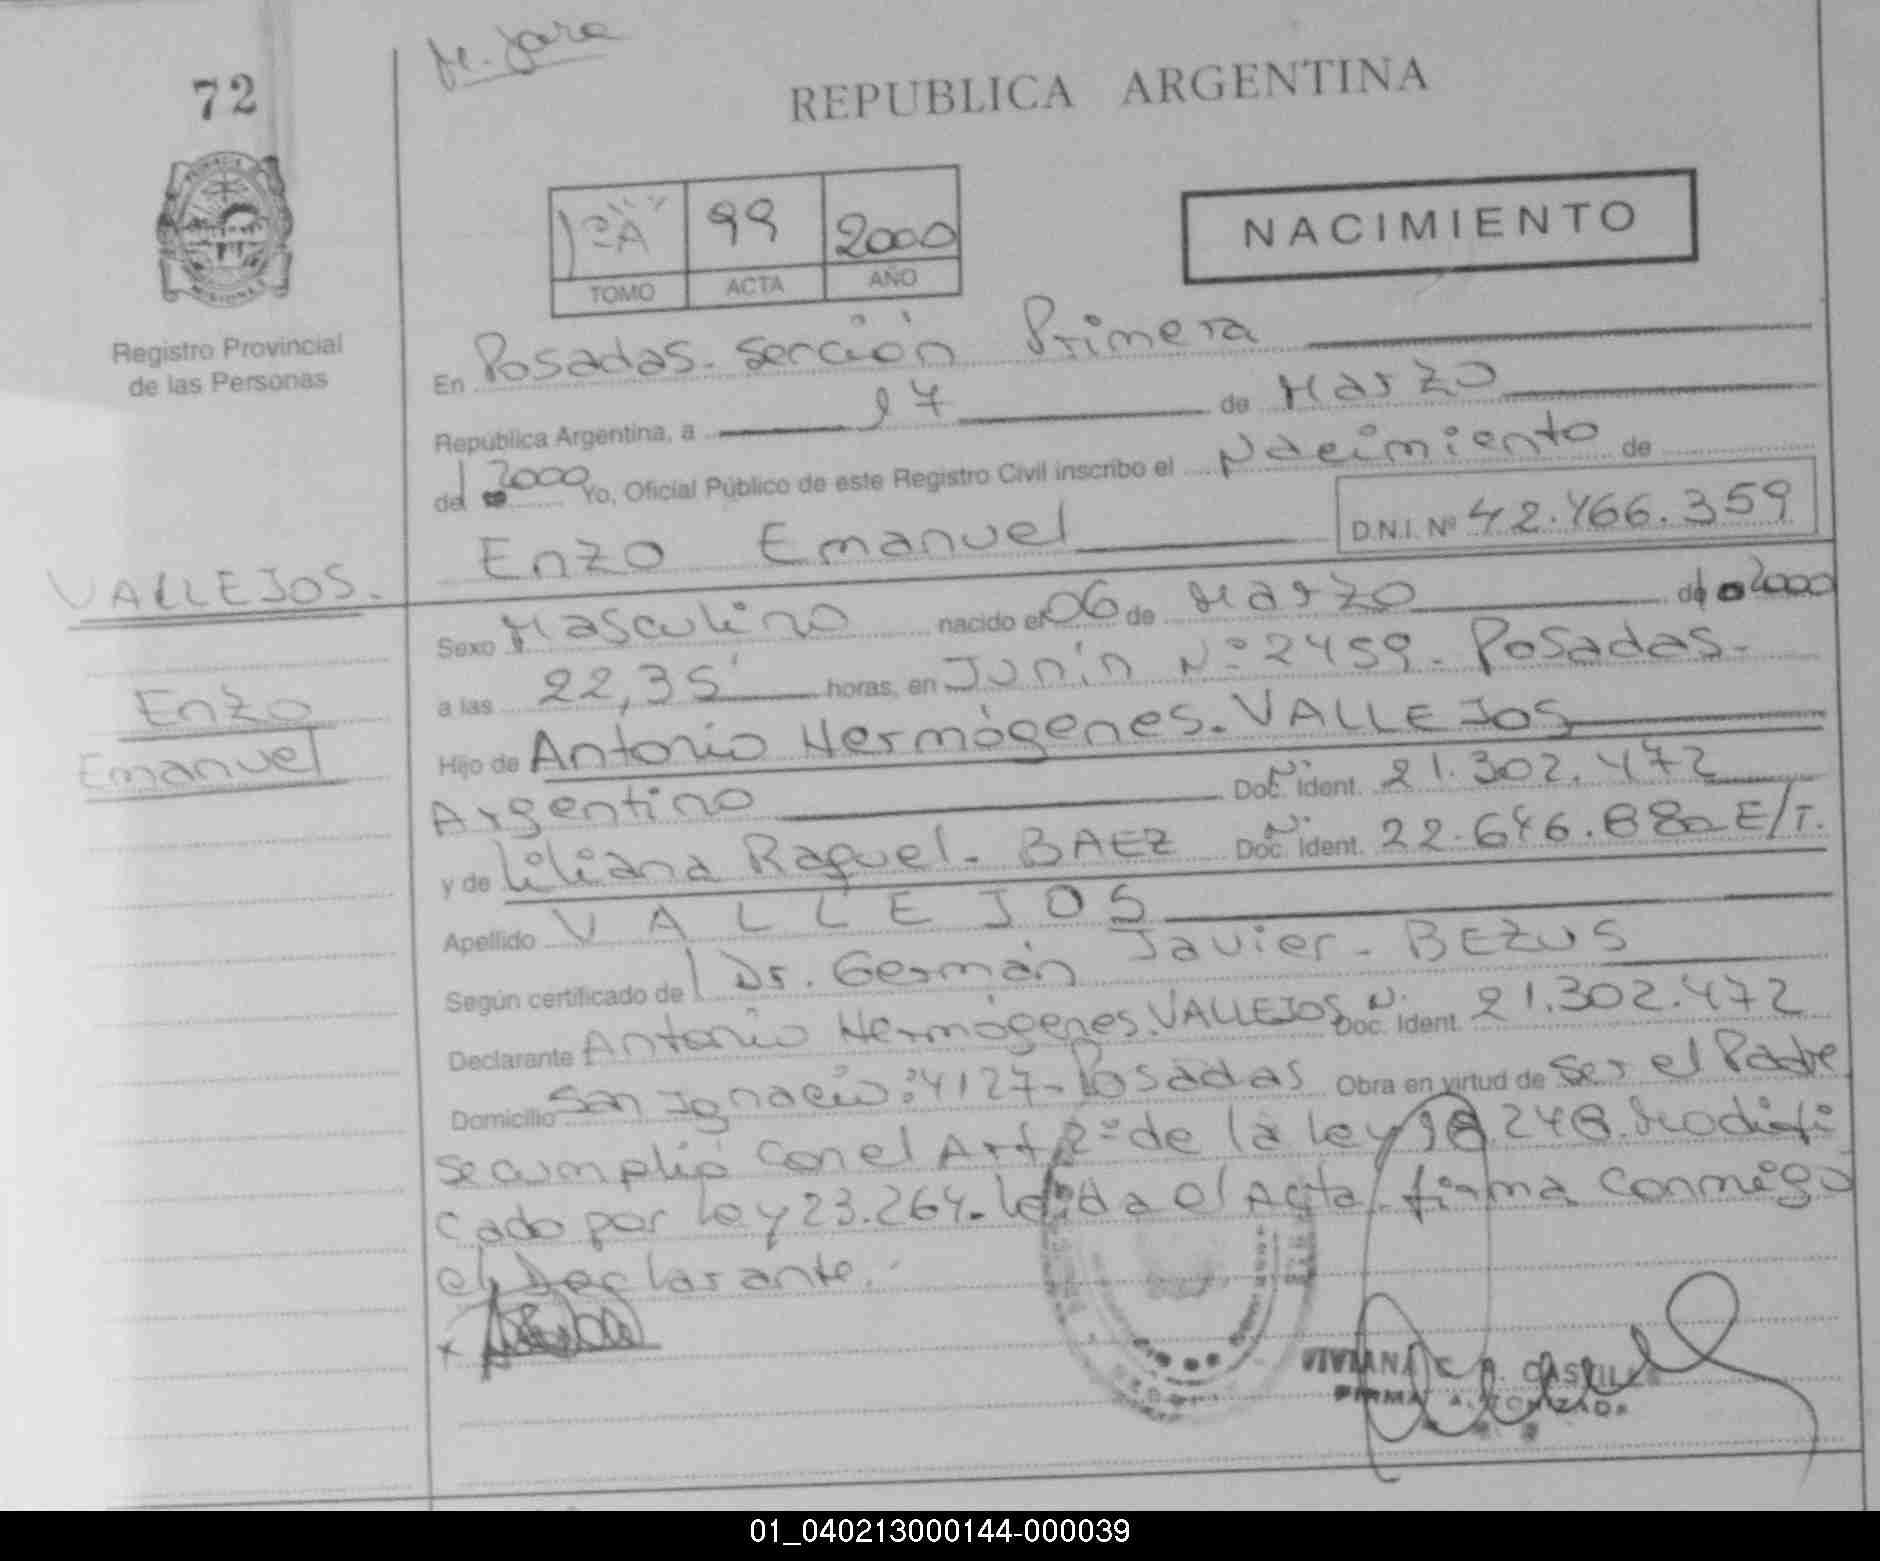 72
REPUBLICA ARGENTINA
1º "A" 99 2000
TOMO ACTA AÑO
NACIMIENTO
Registro Provincial
de las Personas
En Posadas. Sección Primera
República Argentina, a 17 de Marzo
del 2000 Yo, Oficial Público de este Registro Civil inscribo el Nacimiento de
Enzo Emanuel D.N.I. Nº 42.466.359
VALLEJOS.
Enzo
Emanuel
Sexo Masculino nacido el 06 de Marzo del 2000
a las 22,35' horas, en Junín Nº 2459. Posadas.
Hijo de Antonio Hermógenes. VALLEJOS
Argentino Doc. Ident. 21.302.472
y de Liliana Raquel. BAEZ Doc. Ident. 22.646.880 E/T.
Apellido VALLEJOS
Según certificado de Dr. Germán Javier. BEZUS
Declarante Antonio Hermógenes. VALLEJOS Doc. Ident. 21.302.472
Domicilio San Ignacio: 4127. Posadas Obra en virtud de Ser el Padre
se cumplió con el Art 2º de la Ley 18.248. Modifi
cado por Ley 23.264. Leída el Acta, firma conmigo
el Declarante.
VIVIANA C. R.
FIRMA AUTORIZADA
01_040213000144-000039